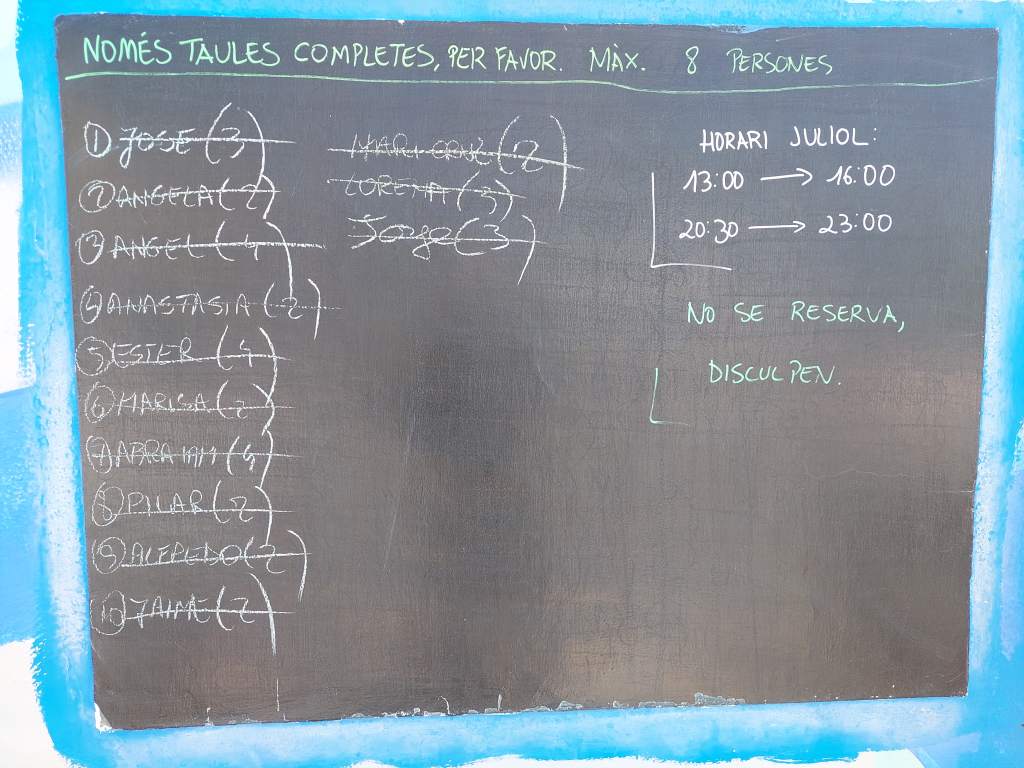 NOMÉS TAULES COMPLETES, PER FAVOR. MÀX. 8 PERSONES
1 JOSE (3)
2 ANGELA (2)
3 ANGEL (4)
4 ANASTASIA (2)
5 ESTER (4)
6 MARISA (2)
7 ABRAHAM (4)
8 PILAR (2)
9 ALFREDO (2)
10 JAIME (2)
MARI CRUZ (2)
LORENA (3)
Jorge (3)
HORARI JULIOL:
13:00 → 16:00
20:30 → 23:00
NO SE RESERVA,
DISCULPEN.